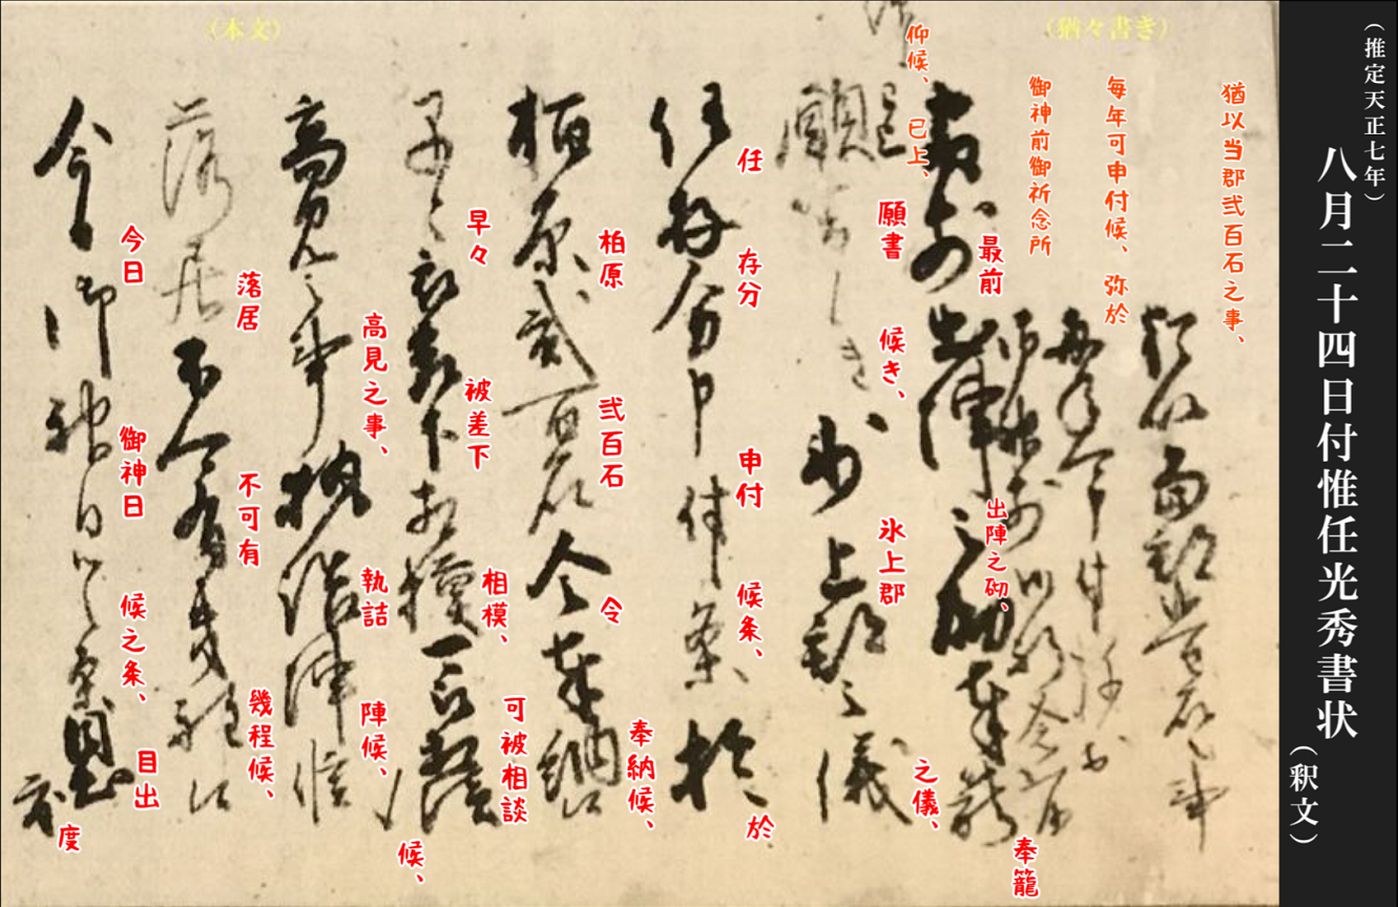 （推定天正七年）
八月二十四日付惟任光秀書状
（釈文）
（猶々書き）
猶以当郡弐百石之事、
毎年可申付候、弥於
御神前御祈念所
仰候、已上、
（本文）
最前出陣之砌、奉籠
願書候き、氷上郡之儀、
任存分申付候条、於
柏原弐百石令奉納候、
早々被差下相模、可被相談候、
高見之事、執詰陣候、
落居不可有幾程候、
今日御神日候之条、目出度